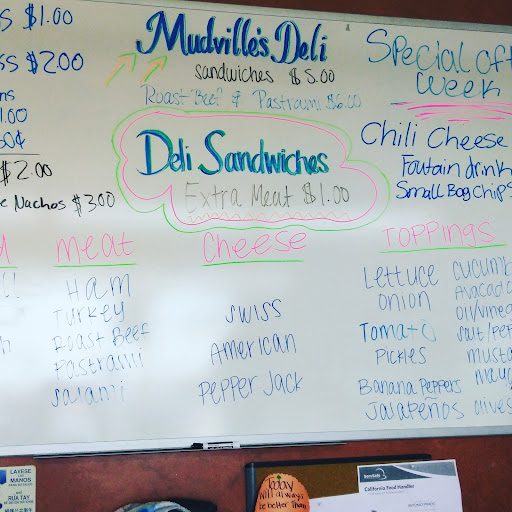 $1.00
$2.00
1.00
$2.00
Nachos $3.00
Mudville's Deli
sandwiches $5.00
Roast Beef & Pastrami $6.00
Deli Sandwiches
Extra Meat $1.00
Special of
Week
Chili Cheese
Foutain drink
Small Bag Chips
meat
Ham
Turkey
Roast Beef
Pastrami
salami
Cheese
swiss
American
Pepper Jack
TOPPINGS
Lettuce
onion
Tomato
Pickles
Banana Peppers
Jalapeños
cucumb
Avacado
oil/vineg
salt/pep
musta
mayo
olives
LAVESE
MANOS
RUA TAY
ServSafe
California Food Handler
Today
will always
be better than